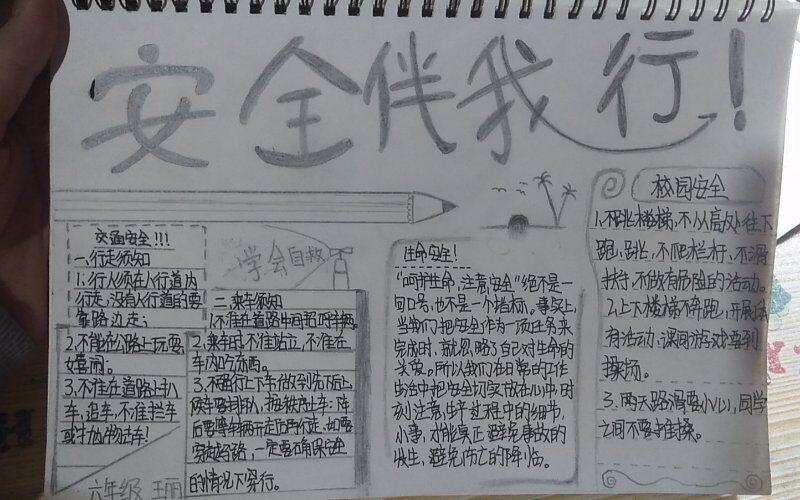 安全伴我行!
交通安全!!!
一、行走须知
1.行人须在人行道内
行走,没有人行道的要
靠路边走;
2.不能在公路上玩耍
嬉闹。
3.不准在道路上扒
车,追车,不准拦车
学会自救
二、乘车须知
1.不准在道路中间招呼车辆。
2.乘车时,不准站立,不准在
车内吃东西。
一定要在确保安全
的情况下穿行。
六年级
生命安全!
"呵护生命,注意安全"绝不是一
句口号,也不是一个指标。事实上,
当我们把安全作为一项任务来
完成时,就忽略了自己对生命的
尊重。所以我们在日常的工作
生活中把安全切实放在心中,时
刻注意生产过程中的细节,
小事,才能真正避免事故的
发生,避免伤亡的降临。
校园安全
1.不跳楼梯,不从高处往下
跑、跳,不爬栏杆、不滑
扶手,不做有危险的活动。
2.上下楼梯不奔跑,开展
有活动、课间游戏要到
操场。
3.雨天路滑要小心,同学
之间不要推搡。